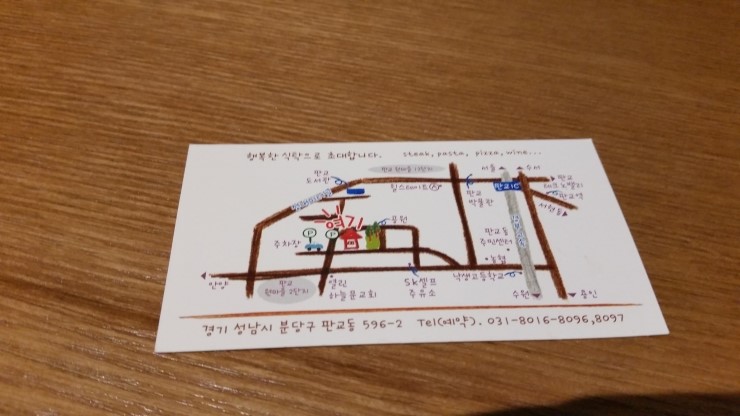 행복한 식탁으로 초대합니다. steak, pasta, pizza, wine...
판교 원마을 12단지
서울
수서
판교
도서관
힐스테이트
판교IC
판교
테크노밸리
판교역
판교
박물관
서현동
여기
공원
P
P
주차장
판교동
주민센터
농협
안양
판교
원마을 2단지
열린
하늘문교회
SK셀프
주유소
낙생고등학교
수원
용인
경기 성남시 분당구 판교동 596-2 Tel(예약). 031-8016-8096,8097